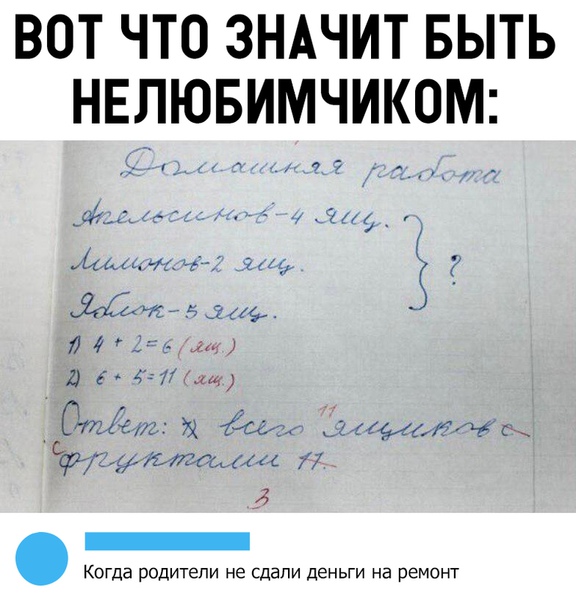 ВОТ ЧТО ЗНАЧИТ БЫТЬ
НЕЛЮБИМЧИКОМ:
Домашняя работа
Апельсинов-4 ящ.
Лимонов-2 ящ. ?
Яблок-5 ящ.
1) 4 + 2=6 (ящ.)
2) 6 + 5=11 (ящ.)
11
Ответ: всего ящиков с
с фруктами 11.
3
Когда родители не сдали деньги на ремонт